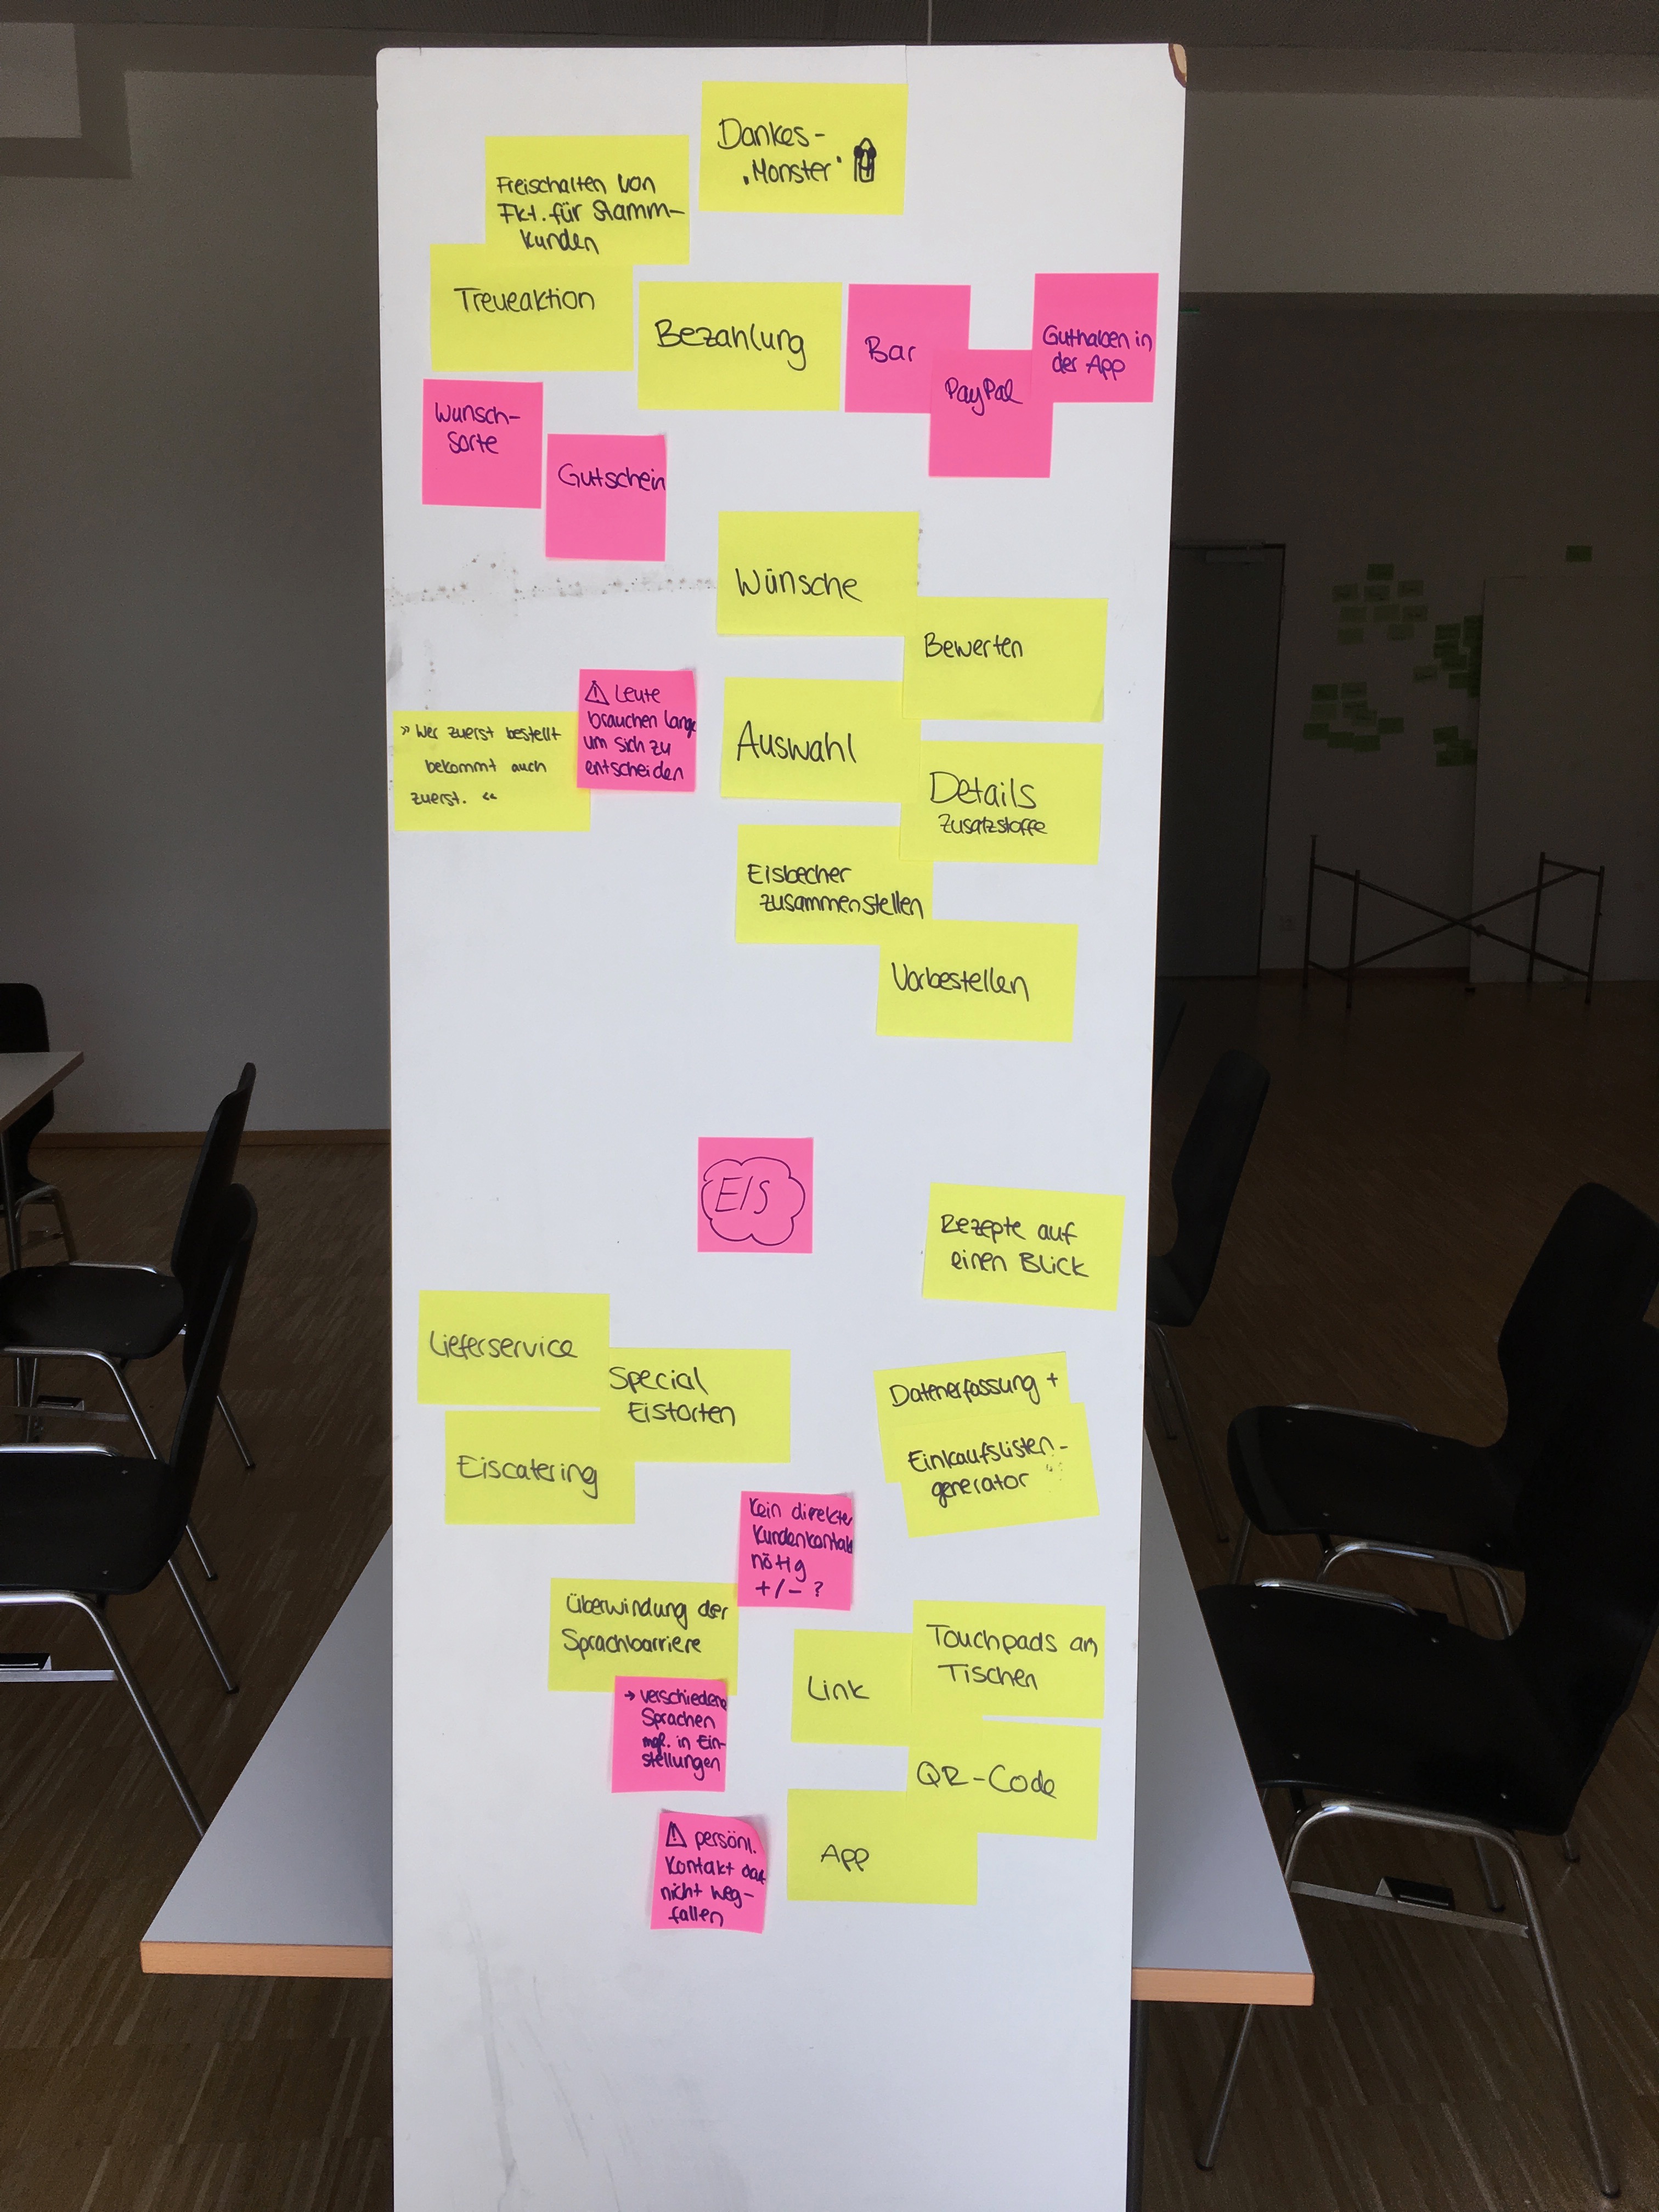 Dankes-
"Monster"
Freischalten von
Fkt. für Stamm-
kunden
Treueaktion
Bezahlung
Bar
PayPal
Guthaben in
der App
Wunsch-
sorte
Gutschein
Wünsche
Bewerten
» Wer zuerst bestellt
bekommt auch
zuerst. «
⚠ Leute
brauchen lange
um sich zu
entscheiden
Auswahl
Details
Zusatzstoffe
Eisbecher
zusammenstellen
Vorbestellen
EIS
Rezepte auf
einen Blick
Lieferservice
Special
Eistorten
Eiscatering
Datenerfassung +
Einkaufslisten-
generator
Kein direkter
Kundenkontakt
nötig
+/- ?
Überwindung der
Sprachbarriere
→ verschiedene
Sprachen
mgl. in Ein-
stellungen
Link
Touchpads an
Tischen
QR-Code
App
⚠ persönl.
Kontakt darf
nicht weg-
fallen